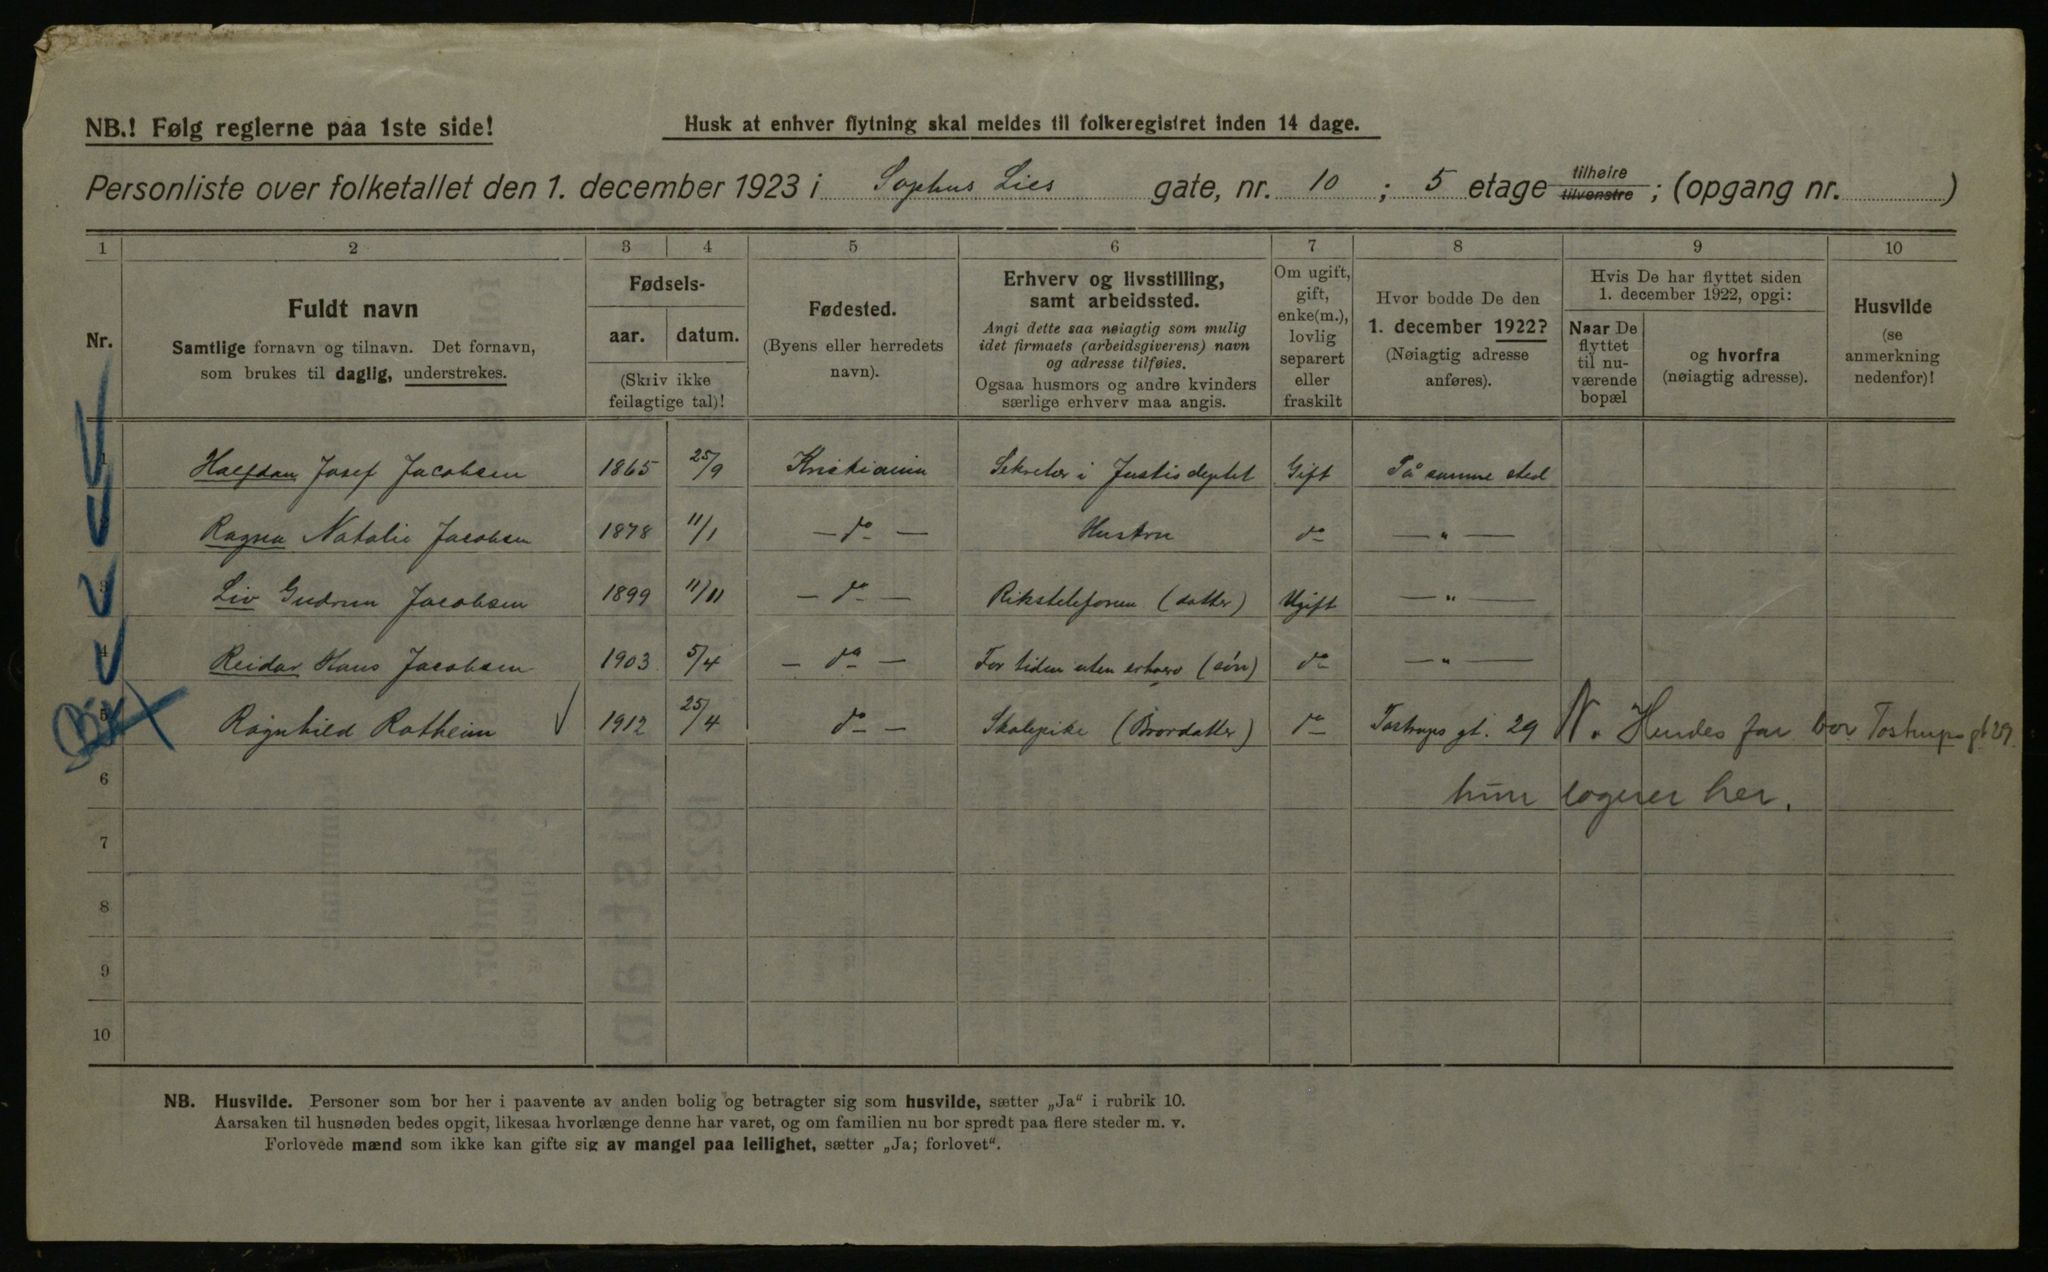 NB.! Følg reglerne paa 1ste side!
Husk at enhver flytning skal meldes til folkeregistret inden 14 dage.
Personliste over folketallet den 1. december 1923 i Sophus Lies gate, nr. 10 ; 5 etage tilhøire tilvenstre ; (opgang nr. )
1 2 3 4 5 6 7 8 9 10
Nr.
Fuldt navn
Samtlige fornavn og tilnavn. Det fornavn,
som brukes til daglig, understrekes.
Fødsels-
aar. datum.
(Skriv ikke
feilagtige tal)!
Fødested.
(Byens eller herredets
navn).
Erhverv og livsstilling,
samt arbeidssted.
Angi dette saa nøiagtig som mulig
idet firmaets (arbeidsgiverens) navn
og adresse tilføies.
Ogsaa husmors og andre kvinders
særlige erhverv maa angis.
Om ugift,
gift,
enke(m.),
lovlig
separert
eller
fraskilt
Hvor bodde De den
1. december 1922?
(Nøiagtig adresse
anføres).
Hvis De har flyttet siden
1. december 1922, opgi:
Naar De
flyttet
til nu-
værende
bopæl
og hvorfra
(nøiagtig adresse).
Husvilde
(se
anmerkning
nedenfor)!
Halfdan Josef Jacobsen 1865 25/9 Kristiania Sekretær i Justisdeptet Gift På samme sted
Ragna Natalie Jacobsen 1878 11/1 — do — Hustru do — " —
3 Liv Gudrun Jacobsen 1899 11/11 — do — Rikstelefonen (datter) Ugift — " —
4 Reidar Hans Jacobsen 1903 5/4 — do — For tiden uten erhverv (søn) do — " —
5 Ragnhild Rotheim 1912 25/4 do — Skolepike (Brordatter) do Tostrups gt. 29 N. Hendes far bor Tostrupsgt 29.
6 hun logerer her.
7
8
9
10
NB. Husvilde. Personer som bor her i paavente av anden bolig og betragter sig som husvilde, sætter „Ja" i rubrik 10.
Aarsaken til husnøden bedes opgit, likesaa hvorlænge denne har varet, og om familien nu bor spredt paa flere steder m. v.
Forlovede mænd som ikke kan gifte sig av mangel paa leilighet, sætter „Ja; forlovet".